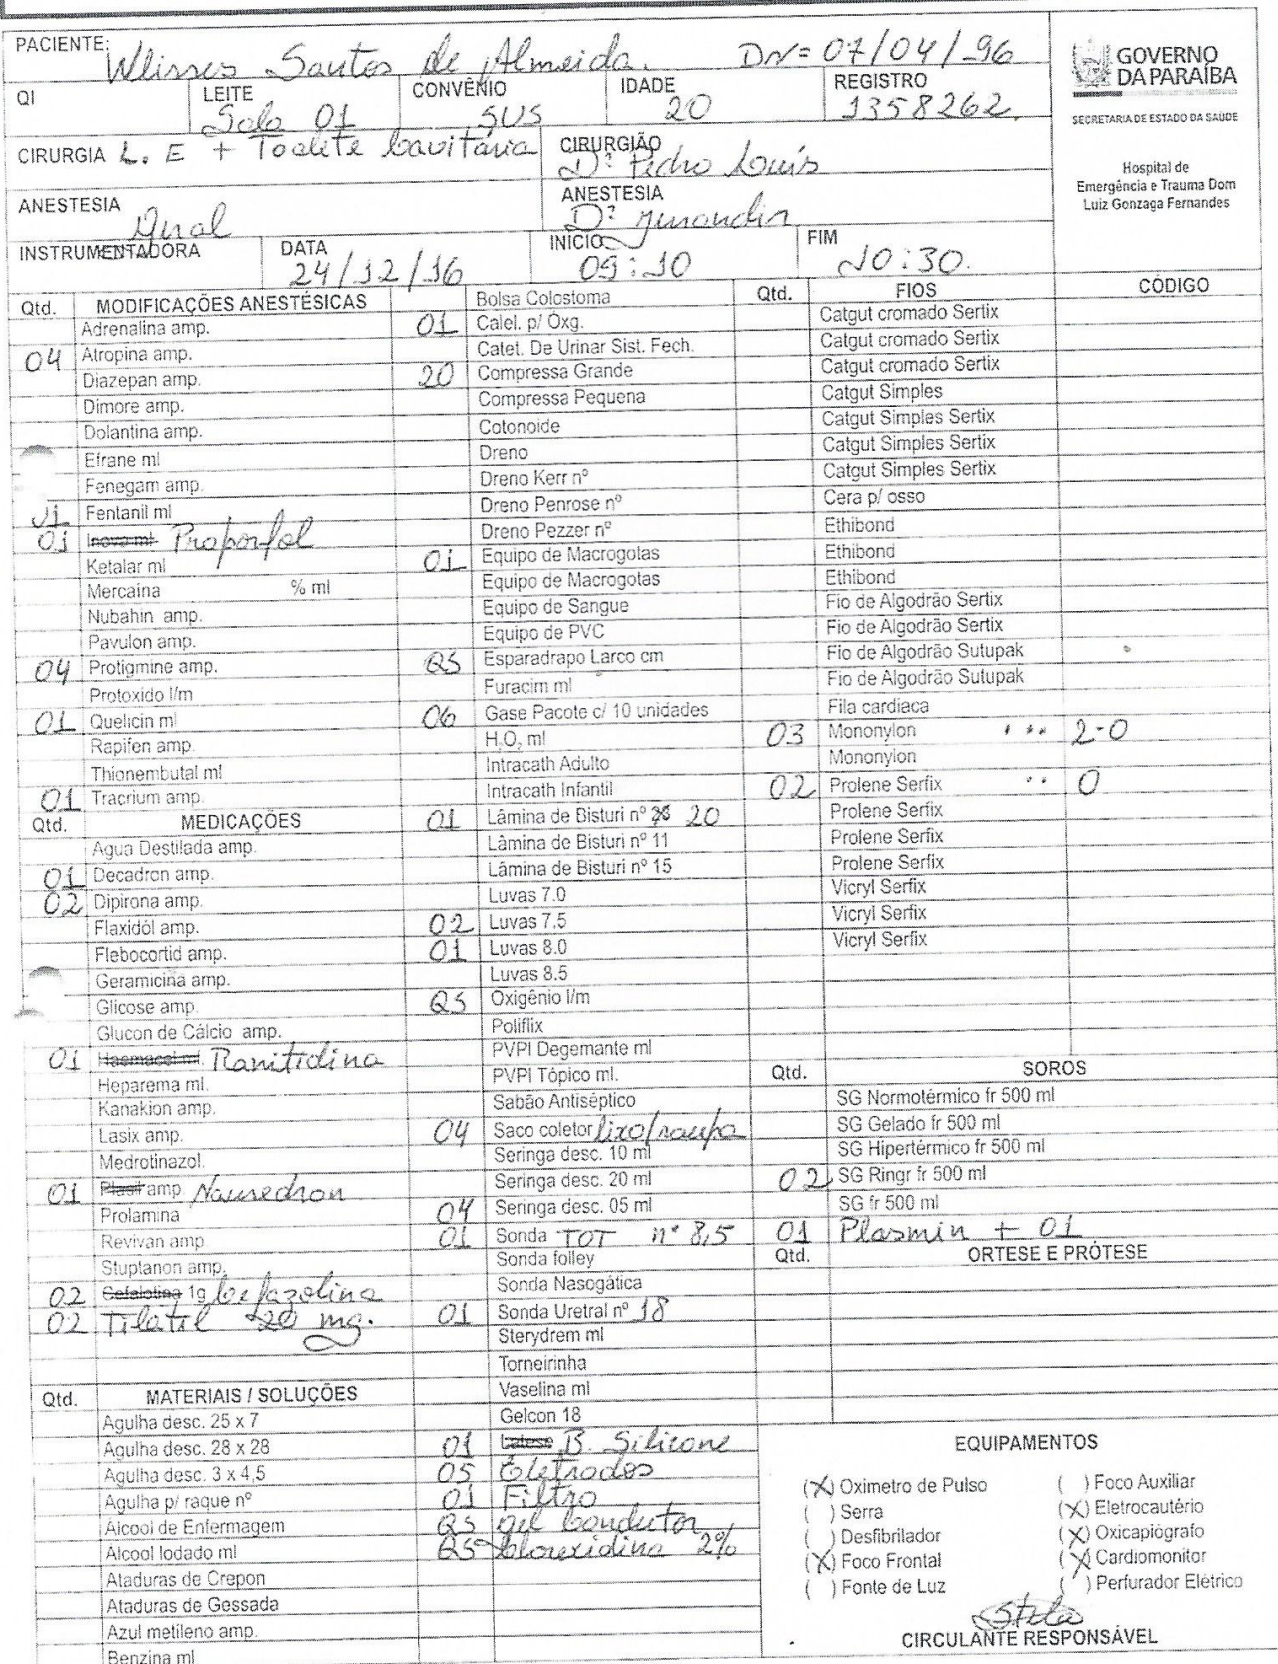 PACIENTE: Ulisses Santos de Almeida. DN= 07/04/96
GOVERNO
DA PARAÍBA
SECRETARIA DE ESTADO DA SAÚDE
Hospital de
Emergência e Trauma Dom
Luiz Gonzaga Fernandes
QI LEITE Sala 01 CONVÊNIO SUS IDADE 20 REGISTRO 1358262.
CIRURGIA L. E + Toalete Cavitária CIRURGIÃO Dº. Pedro Luís
ANESTESIA Geral ANESTESIA Dº. Jurandir
INSTRUMENTADORA DATA 24/12/16 INÍCIO 09:10 FIM 10:30.
Qtd. MODIFICAÇÕES ANESTÉSICAS
Adrenalina amp.
04 Atropina amp.
Diazepan amp.
Dimore amp.
Dolantina amp.
Efrane ml
Fenegam amp.
01 Fentanil ml
01 Inova ml Proporfol
Ketalar ml
Mercaina % ml
Nubahin amp.
Pavulon amp.
04 Protigmine amp.
Protoxido l/m
01 Quelicin ml
Rapifen amp.
Thionembutal ml
01 Tracrium amp.
Qtd. MEDICAÇÕES
Agua Destilada amp.
01 Decadron amp.
02 Dipirona amp.
Flaxidol amp.
Flebocortid amp.
Geramicina amp.
Glicose amp.
Glucon de Cálcio amp.
01 Haemacel ml Ranitidina
Heparema ml.
Kanakion amp.
Lasix amp.
Medrotinazol.
01 Plasil amp Nausedron
Prolamina
Revivan amp
Stuplanon amp.
02 Cefalotina 1g Cefazolina
02 Tilatil 20 mg.
Qtd. MATERIAIS / SOLUÇÕES
Agulha desc. 25 x 7
Agulha desc. 28 x 28
Agulha desc. 3 x 4,5
Agulha p/ raque nº
Álcool de Enfermagem
Álcool Iodado ml
Ataduras de Crepon
Ataduras de Gessada
Azul metileno amp.
Benzina ml
Bolsa Colostoma
01 Catet. p/ Oxg.
Catet. De Urinar Sist. Fech.
20 Compressa Grande
Compressa Pequena
Cotonoide
Dreno
Dreno Kerr nº
Dreno Penrose nº
Dreno Pezzer nº
01 Equipo de Macrogotas
Equipo de Macrogotas
Equipo de Sangue
Equipo de PVC
QS Esparadrapo Larco cm
Furacim ml
06 Gase Pacote c/ 10 unidades
H2O2 ml
Intracath Adulto
Intracath Infantil
01 Lâmina de Bisturi nº 20
Lâmina de Bisturi nº 11
Lâmina de Bisturi nº 15
Luvas 7.0
02 Luvas 7.5
01 Luvas 8.0
Luvas 8.5
QS Oxigênio l/m
Poliflix
PVPI Degemante ml
PVPI Tópico ml.
Sabão Antiséptico
04 Saco coletor lixo/roupa
Seringa desc. 10 ml
Seringa desc. 20 ml
04 Seringa desc. 05 ml
01 Sonda TOT nº 8,5
Sonda folley
Sonda Nasogática
01 Sonda Uretral nº 18
Sterydrem ml
Torneirinha
Vaselina ml
Gelcon 18
01 B. Silicone
05 Eletrodos
01 Filtro
QS gel Condutor
QS Clorexidina 2%
Qtd. FIOS CÓDIGO
Catgut cromado Sertix
Catgut cromado Sertix
Catgut cromado Sertix
Catgut Simples
Catgut Simples Sertix
Catgut Simples Sertix
Catgut Simples Sertix
Cera p/ osso
Ethibond
Ethibond
Ethibond
Fio de Algodrão Sertix
Fio de Algodrão Sertix
Fio de Algodrão Sutupak
Fio de Algodrão Sutupak
Fila cardiaca
03 Mononylon 2-0
Mononylon
02 Prolene Serfix 0
Prolene Serfix
Prolene Serfix
Prolene Serfix
Vicryl Serfix
Vicryl Serfix
Vicryl Serfix
Qtd. SOROS
SG Normotérmico fr 500 ml
SG Gelado fr 500 ml
SG Hipertérmico fr 500 ml
02 SG Ringr fr 500 ml
SG fr 500 ml
01 Plasmin + 01
Qtd. ORTESE E PRÓTESE
EQUIPAMENTOS
(X) Oximetro de Pulso ( ) Foco Auxiliar
( ) Serra (X) Eletrocautério
( ) Desfibrilador (X) Oxicapiógrafo
(X) Foco Frontal (X) Cardiomonitor
( ) Fonte de Luz ( ) Perfurador Elétrico
Stela
CIRCULANTE RESPONSÁVEL